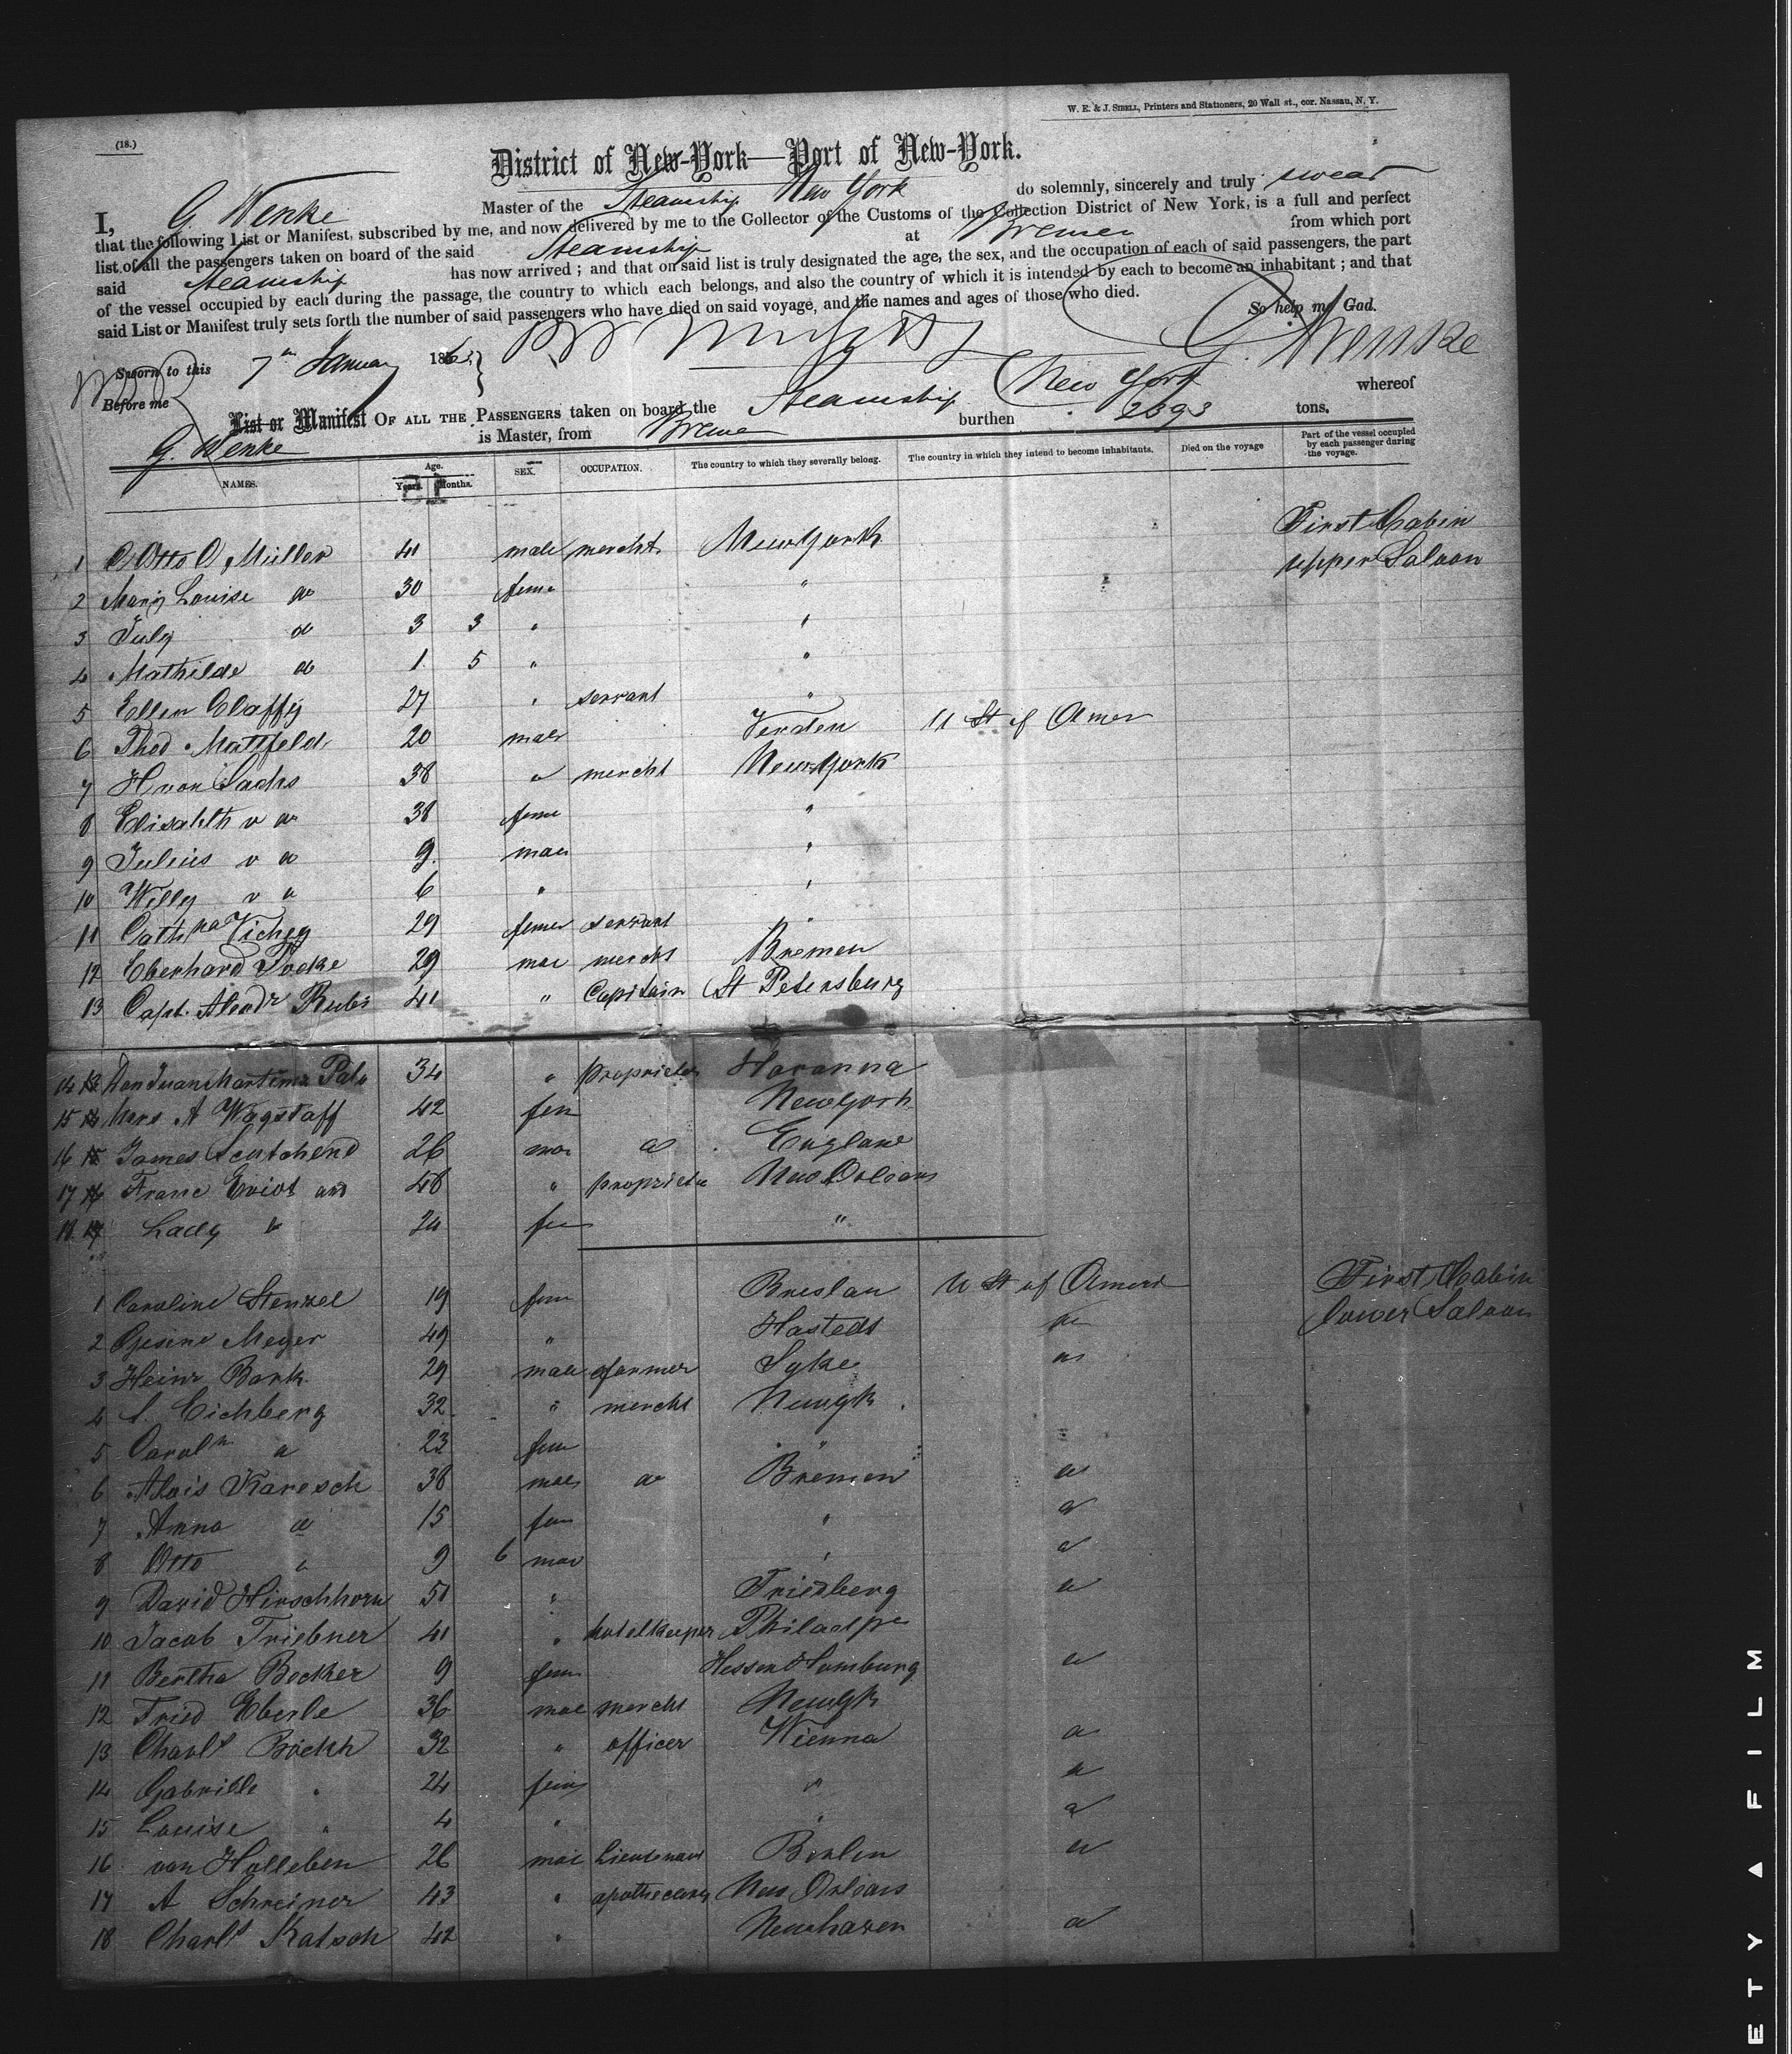 W. E. & J. SIBELL, Printers and Stationers, 20 Wall st., cor. Nassau, N. Y.
(18.)
District of New-York—Port of New-York.
I, G. Wenke Master of the Steamship New York do solemnly, sincerely and truly swear
that the following List or Manifest, subscribed by me, and now delivered by me to the Collector of the Customs of the Collection District of New York, is a full and perfect
list of all the passengers taken on board of the said Steamship at Bremen from which port
said Steamship has now arrived; and that on said list is truly designated the age, the sex, and the occupation of each of said passengers, the part
of the vessel occupied by each during the passage, the country to which each belongs, and also the country of which it is intended by each to become an inhabitant; and that
said List or Manifest truly sets forth the number of said passengers who have died on said voyage, and the names and ages of those who died. So help me God.
Sworn to this 7th January 186 G. Wenke
Before me
List or Manifest OF ALL THE PASSENGERS taken on board the Steamship New York whereof
G. Wenke is Master, from Bremen burthen 2393 tons.
NAMES. Age. Years. Months. SEX. OCCUPATION. The country to which they severally belong. The country in which they intend to become inhabitants. Died on the voyage Part of the vessel occupied by each passenger during the voyage.
1 Otto O Müller 41 male mercht New York First Cabin upper Saloon
2 Mary Louise do 30 feme "
3 July do 3 3 " "
4 Mathilde do 1 5 " "
5 Ellen Claffy 27 " servant "
6 Thod Mattfeld 20 male Verden U St of Amer
7 H von Sachs 38 " mercht New York
8 Elisabth v do 38 feme "
9 Julius v do 9 male "
10 Willy v do 6 " "
11 Cathna Vichey 29 feme servant "
12 Eberhard 29 male mercht Bremen
13 Capt. Alexdr 41 " Capitain St Petersburg
14 Don Juan Martinez 34 " proprietor Havanna
15 Mrs A Wagstaff 42 fem New York
16 James 26 male do England
17 Franc and 48 " proprietor New Orleans
18 Lady " 24 fem "
1 Caroline Stenzel 19 fem Breslau U St of Amer First Cabin lower Saloon
2 Gesine Meyer 49 " Hastedt do
3 Heinr Bark 29 male farmer Syke do
4 Eichberg 32 " mercht Newyk
5 Carolne do 23 fem "
6 Alois Karesch 38 male do Bremen do
7 Anna do 15 fem " do
8 Otto " 9 6 male " do
9 David Hirschhorn 51 " Friedberg do
10 Jacob Triebner 41 " hotelkeeper Philadlpa
11 Bertha Becker 9 fem Hessen Homburg do
12 Fried Eberle 36 male mercht Newyk
13 Charls Böckh 32 " officer Wienna do
14 Gabrielle " 24 fem " do
15 Louise " 4 " " do
16 von Holleben 26 male Lieutenant Berlin do
17 A Schreiner 43 " apothecary New Orleans
18 Charls Katsch 42 " Newhaven do
ETY ▲ FILM